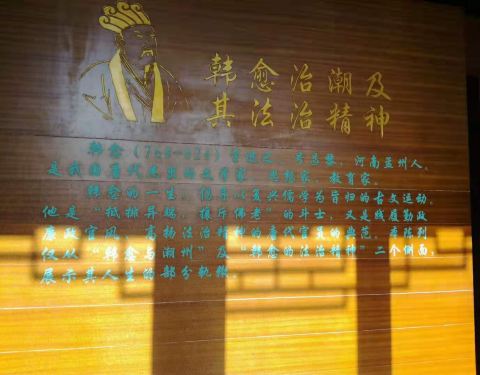 韩愈治潮及
其法治精神
韩愈（768—824）字退之，号昌黎，河南孟州人，
是我国唐代杰出的文学家、思想家、教育家。
韩愈的一生，倡导以复兴儒学为旨归的古文运动，
他是“抵排异端，攘斥佛老”的斗士，又是践履勤政
廉政官风、高扬法治精神的唐代官员的典范。本陈列
仅从“韩愈与潮州”及“韩愈的法治精神”二个侧面，
展示其人生的部分轨辙。